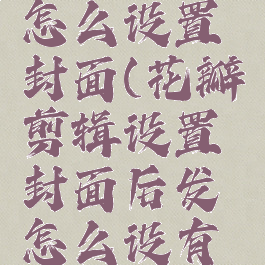 怎么设置
封面(花瓣
剪辑设置
封面后发
怎么没有